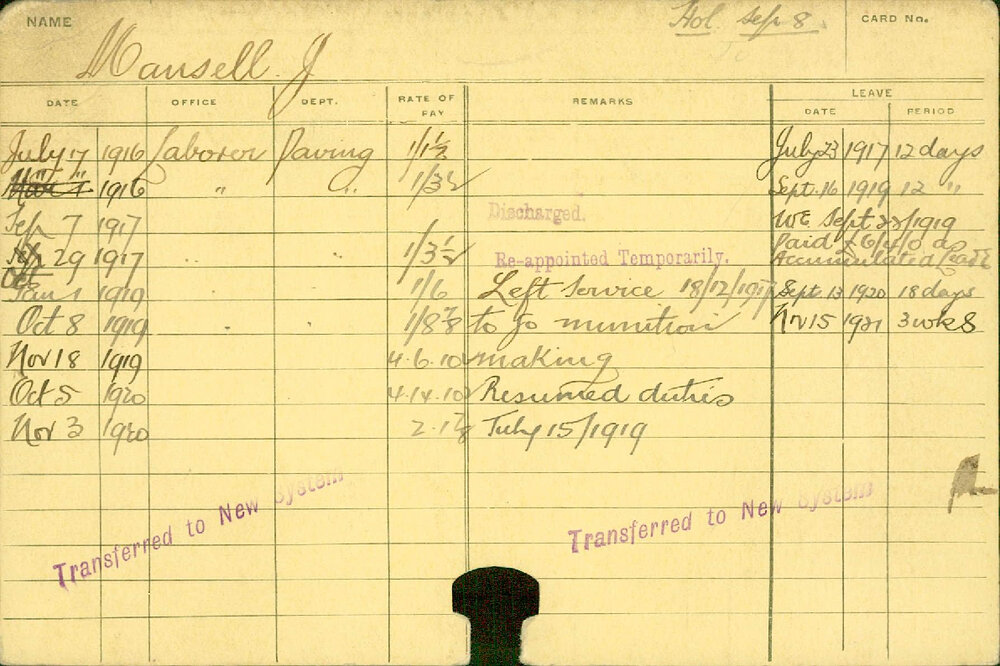 NAME
Mansell. J
Hol. Sep 8
CARD No.
DATE OFFICE DEPT. RATE OF PAY REMARKS LEAVE
DATE PERIOD
July 17 1916 Laborer Paving 1/1½ July 23 1917 12 days
1916 " " 1/3½ Sept. 16 1919 12 "
7 1917 Discharged. WE Sept 23/1919
29 1917 " " 1/3½ Re-appointed Temporarily. Paid £6/4/0 a
Accumulated
Jan 1 1919 " " 1/6 Left Service 18/12/1917 Sept 13 1920 18 days
Oct 8 1919 " " 1/8⅞ to go munition Nov 15 1921 3 wks
Nov 18 1919 4.6.10 making
Oct 5 1920 4.14.10 Resumed duties
Nov 3 1920 July 15/1919
Transferred to New System
Transferred to New System